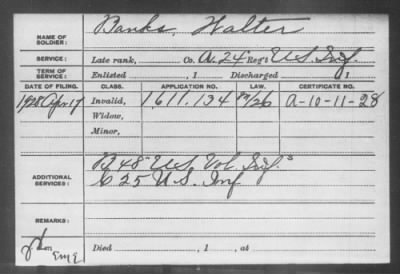 NAME OF SOLDIER: Banks, Walter
SERVICE: Late rank, Co. A. 24 Reg't U.S. Inf.
TERM OF SERVICE: Enlisted , 1 Discharged , 1
DATE OF FILING. CLASS. APPLICATION NO. LAW. CERTIFICATE NO.
1928 Apr 17 Invalid, 1611.134 A-10-11-28
Widow,
Minor,
ADDITIONAL SERVICES: B 48" U.S. Vol. Inf.
C 25 U.S. Inf
REMARKS:
Died , 1 , at